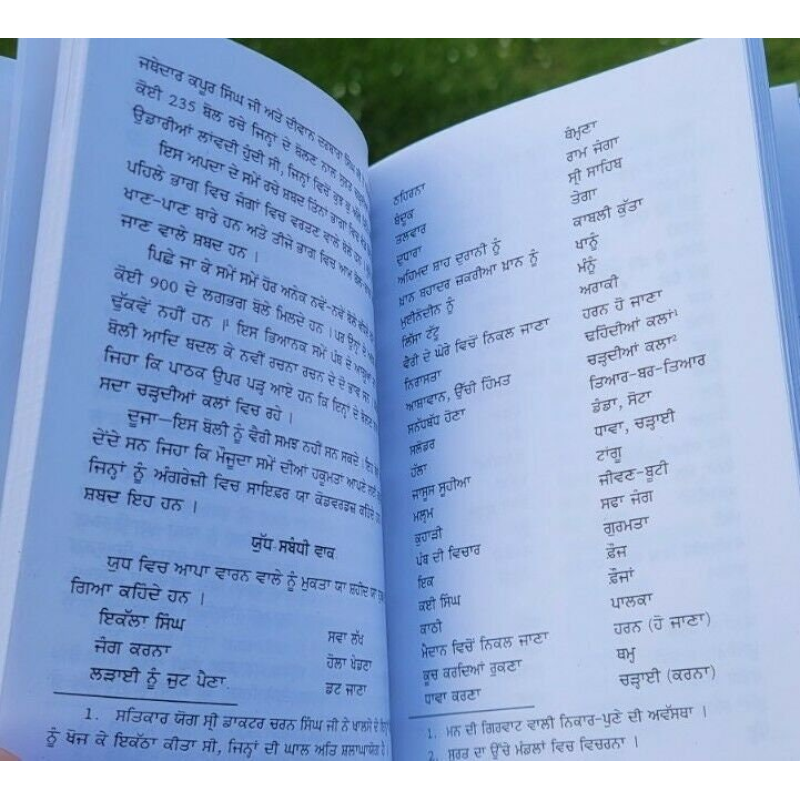 ਜਥੇਦਾਰ ਕਪੂਰ ਸਿੰਘ ਜੀ ਅਤੇ ਦੀਵਾਨ ਦਰਬਾਰਾ ਸਿੰਘ ਜੀ
ਕੋਈ 235 ਬੋਲ ਰਚੇ ਜਿਨ੍ਹਾਂ ਦੇ ਬੋਲਣ ਨਾਲ ਸੁਰਤ
ਉਡਾਰੀਆਂ ਲਾਂਵਦੀ ਹੁੰਦੀ ਸੀ, ਜਿਨ੍ਹਾਂ ਵਿਚੋਂ ਕੁਝ ਕੁ
ਇਸ ਅਪਦਾ ਦੇ ਸਮੇਂ ਰਚੇ ਸ਼ਬਦ ਤਿੰਨਾ ਭਾਗਾਂ ਵਿਚ
ਪਹਿਲੇ ਭਾਗ ਵਿਚ ਜੰਗਾਂ ਵਿਚ ਵਰਤਣ ਵਾਲੇ ਬੋਲੇ ਹਨ
ਖਾਣ-ਪਾਣ ਬਾਰੇ ਹਨ ਅਤੇ ਤੀਜੇ ਭਾਗ ਵਿਚ ਆਮ ਬੋਲ
ਜਾਣ ਵਾਲੇ ਸ਼ਬਦ ਹਨ ।
ਪਿਛੇ ਜਾ ਕੇ ਸਮੇਂ ਸਮੇਂ ਹੋਰ ਅਨੇਕ ਨਵੇਂ-ਨਵੇਂ ਬੋਲੇ
ਕੋਈ 900 ਦੇ ਲਗਭਗ ਬੋਲੇ ਮਿਲਦੇ ਹਨ । ਪਰ ਉਨ੍ਹਾਂ ਦੇ
ਢੁੱਕਵੇਂ ਨਹੀਂ ਹਨ ।¹ ਇਸ ਭਿਆਨਕ ਸਮੇਂ ਪੰਥ ਦੇ ਆਗੂਆਂ
ਬੋਲੀ ਆਦਿ ਬਦਲ ਕੇ ਨਵੀਂ ਰਚਨਾ ਰਚਨ ਦੇ ਦੋ ਭਾਵ ਸਨ ।
ਜਿਹਾ ਕਿ ਪਾਠਕ ਉਪਰ ਪੜ੍ਹ ਆਏ ਹਨ ਕਿ ਇਨ੍ਹਾਂ ਦੇ ਬੋਲਣ
ਸਦਾ ਚੜ੍ਹਦੀਆਂ ਕਲਾਂ ਵਿਚ ਰਹੇ ।
ਦੂਜਾ—ਇਸ ਬੋਲੀ ਨੂੰ ਵੈਰੀ ਸਮਝ ਨਹੀਂ ਸਨ ਸਕਦੇ ।
ਦੇਂਦੇ ਸਨ ਜਿਹਾ ਕਿ ਮੌਜੂਦਾ ਸਮੇਂ ਦੀਆਂ ਹਕੂਮਤਾ ਆਪਣੇ
ਜਿਨ੍ਹਾਂ ਨੂੰ ਅੰਗਰੇਜ਼ੀ ਵਿਚ ਸਾਇਫ਼ਰ ਯਾ ਕੋਡਵਰਡਜ਼ ਕਹਿੰਦੇ ਹਨ
ਸ਼ਬਦ ਇਹ ਹਨ ।
ਯੁੱਧ ਸਬੰਧੀ ਵਾਕ
ਯੁਧ ਵਿਚ ਆਪਾ ਵਾਰਨ ਵਾਲੇ ਨੂੰ ਮੁਕਤਾ ਯਾ ਸ਼ਹੀਦ ਯਾ
ਗਿਆ ਕਹਿੰਦੇ ਹਨ ।
ਇਕੱਲਾ ਸਿੰਘ ਸਵਾ ਲੱਖ
ਜੰਗ ਕਰਨਾ ਹੋਲਾ ਖੇਡਣਾ
ਲੜਾਈ ਨੂੰ ਜੁਟ ਪੈਣਾ ਡਟ ਜਾਣਾ
1. ਸਤਿਕਾਰ ਯੋਗ ਸ੍ਰੀ ਡਾਕਟਰ ਚਰਨ ਸਿੰਘ ਜੀ ਨੇ ਖਾਲਸੇ ਦੇ
ਨੂੰ ਖੋਜ ਕੇ ਇਕੱਠਾ ਕੀਤਾ ਸੀ, ਜਿਨ੍ਹਾਂ ਦੀ ਘਾਲ ਅਤਿ ਸ਼ਲਾਘਾਯੋਗ ਹੈ
ਨਹਿਰਨਾ ਬੰਮ੍ਹਣਾ
ਬੰਦੂਕ ਰਾਮ ਜੰਗਾ
ਤਲਵਾਰ ਸ੍ਰੀ ਸਾਹਿਬ
ਦੁਧਾਰਾ ਤੇਗਾ
ਅਹਿਮਦ ਸ਼ਾਹ ਦੁਰਾਨੀ ਨੂੰ ਕਾਬਲੀ ਕੁੱਤਾ
ਖ਼ਾਨ ਬਹਾਦਰ ਜ਼ਕਰੀਆ ਖ਼ਾਨ ਨੂੰ ਖਾਨੂੰ
ਮੁਈਨੋਦੀਨ ਨੂੰ ਮੰਨੂੰ
ਲਿੱਸਾ ਟੱਟੂ ਅਰਾਕੀ
ਵੈਰੀ ਦੇ ਘੇਰੇ ਵਿਚੋਂ ਨਿਕਲ ਜਾਣਾ ਹਰਨ ਹੋ ਜਾਣਾ
ਨਿਰਾਸਤਾ ਢਹਿੰਦੀਆਂ ਕਲਾਂ¹
ਆਸ਼ਾਵਾਨ, ਉੱਚੀ ਹਿੰਮਤ ਚੜ੍ਹਦੀਆਂ ਕਲਾ²
ਸਨੱਧਬੱਧ ਹੋਣਾ ਤਿਆਰ-ਬਰ-ਤਿਆਰ
ਸਲੋਤਰ ਡੰਡਾ, ਸੋਟਾ
ਹੱਲਾ ਧਾਵਾ, ਚੜ੍ਹਾਈ
ਜਾਸੂਸ ਸੂਹੀਆ ਟਾਂਗੂ
ਮਲ੍ਹਮ ਜੀਵਣ-ਬੂਟੀ
ਕੁਹਾੜੀ ਸਫਾ ਜੰਗ
ਪੰਥ ਦੀ ਵਿਚਾਰ ਗੁਰਮਤਾ
ਇਕ ਫ਼ੌਜ
ਕਈ ਸਿੰਘ ਫ਼ੌਜਾਂ
ਕਾਠੀ ਪਾਲਕਾ
ਮੈਦਾਨ ਵਿਚੋਂ ਨਿਕਲ ਜਾਣਾ ਹਰਨ (ਹੋ ਜਾਣਾ)
ਕੂਚ ਕਰਦਿਆਂ ਰੁਕਣਾ ਥਮ੍ਹ
ਧਾਵਾ ਕਰਣਾ ਚੜ੍ਹਾਈ (ਕਰਨਾ)
1. ਮਨ ਦੀ ਗਿਰਵਾਟ ਵਾਲੀ ਨਿਕਾਰ-ਪੁਣੇ ਦੀ ਅਵੱਸਥਾ ।
2. ਸੁਰਤ ਦਾ ਉੱਚੇ ਮੰਡਲਾਂ ਵਿਚ ਵਿਚਰਨਾ ।